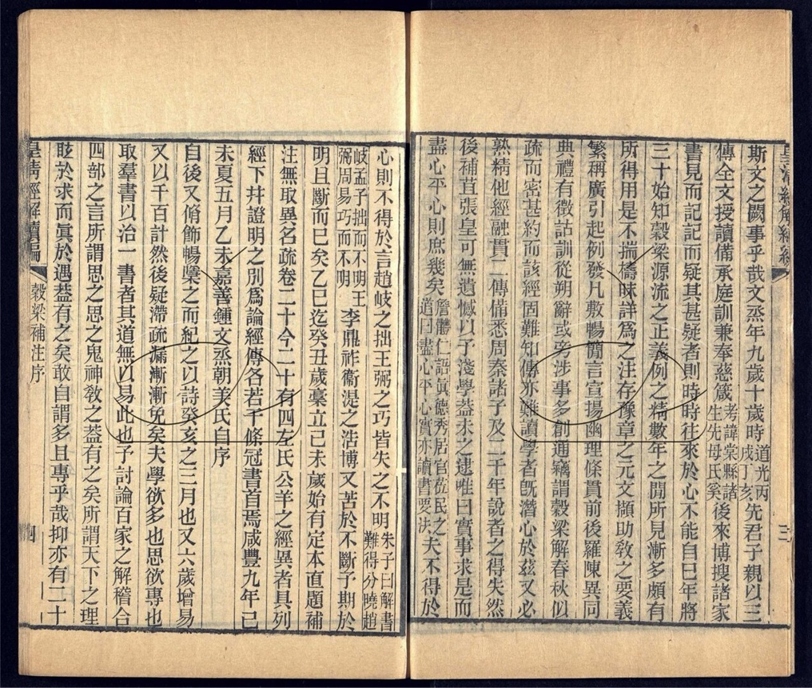 斯文之闕事乎哉文烝年九歲十歲時道光丙戌丁亥先君子親以三
傳全文授讀備承庭訓兼奉慈箴考諱棠縣諸生先母氏奚後來博搜諸家
書見而記記而疑其甚疑者則時時往來於心不能自巳年將
三十始知穀梁源流之正義例之精數年之閒所見漸多頗有
所得用是不揣檮昧詳爲之注存豫章之元文擷助敎之要義
繁稱廣引起例發凡敷暢簡言宣揚幽理條貫前後羅陳異同
典禮有徵詁訓從朔辭或旁涉事多創通竊謂穀梁解春秋似
疏而密甚約而該經固難知傳亦難讀學者旣潛心於兹又必
熟精他經融貫二傳備悉周秦諸子及二千年說者之得失然
後補苴張皇可無遺憾以予淺學蓋未之逮唯曰實事求是而
盡心平心則庶幾矣詹體仁語眞德秀居官莅民之道曰盡心平心實亦讀書要法夫不得於
皇清經解續編
穀梁補注序
三
心則不得於言趙岐之拙王弼之巧皆失之不明朱子曰解書難得分曉趙岐孟子拙而不明王弼周易巧而不明
李鼎祚衞湜之浩博又苦於不斷子期於
明且斷而巳矣乙巳迄癸丑歲藁立己未歲始有定本直題補
注無取異名疏卷二十今二十有四左氏公羊之經異者具列
經下幷證明之別爲論經傳各若干條冠書首焉咸豐九年己
未夏五月乙未嘉善鍾文烝朝美氏自序
自後又脩飾暢櫽之而紀之以詩癸亥之三月也又六歲增易
又以千百計然後疑滯疏漏漸漸免矣夫學欲多也思欲專也
取羣書以治一書者其道無以易此也予討論百家之解稽合
四部之言所謂思之思之鬼神敎之葢有之矣所謂天下之理
眩於求而眞於遇葢有之矣敢自謂多且專乎哉抑亦有二十
皇清經解續編
穀梁補注序
四